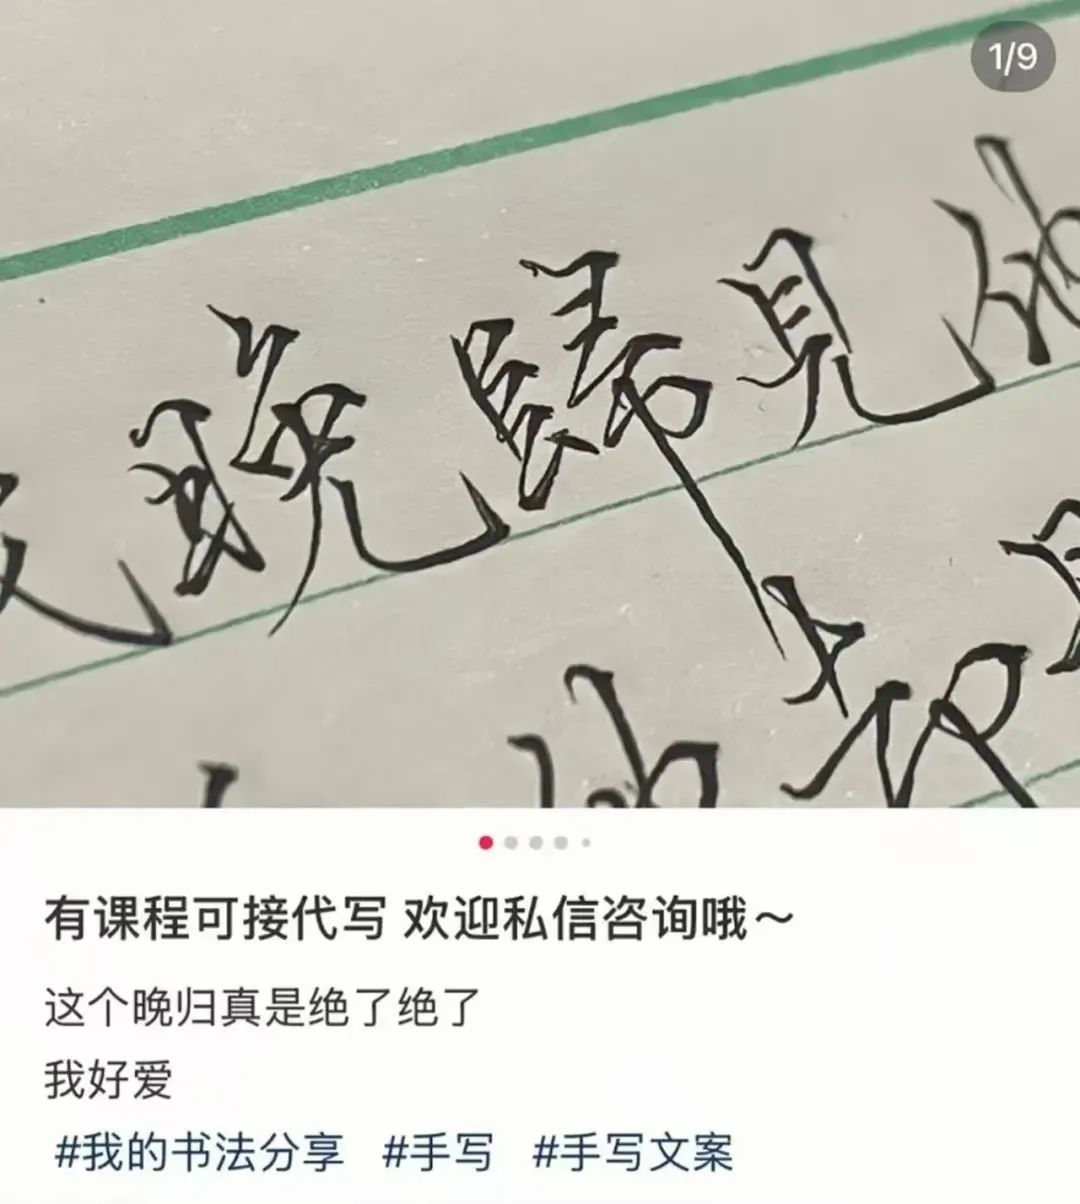 1/9
晚歸見他
有课程可接代写 欢迎私信咨询哦～
这个晚归真是绝了绝了
我好爱
#我的书法分享 #手写 #手写文案